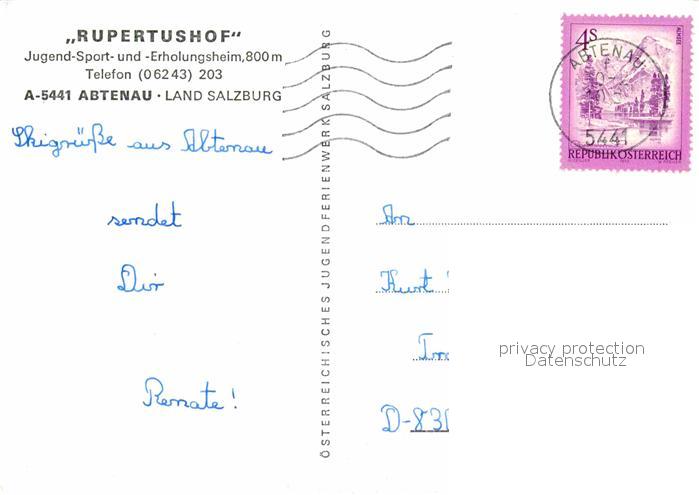 „RUPERTUSHOF"
Jugend-Sport- und -Erholungsheim, 800 m
Telefon (0 62 43) 203
A-5441 ABTENAU · LAND SALZBURG
Skigrüße aus Abtenau
sendet
Dir
Renate!
ÖSTERREICHISCHES JUGENDFERIENWERK SALZBURG
4s
ALMSEE
ABTENAU
5441
REPUBLIK ÖSTERREICH
An
Kurt
D-831
privacy protection
Datenschutz